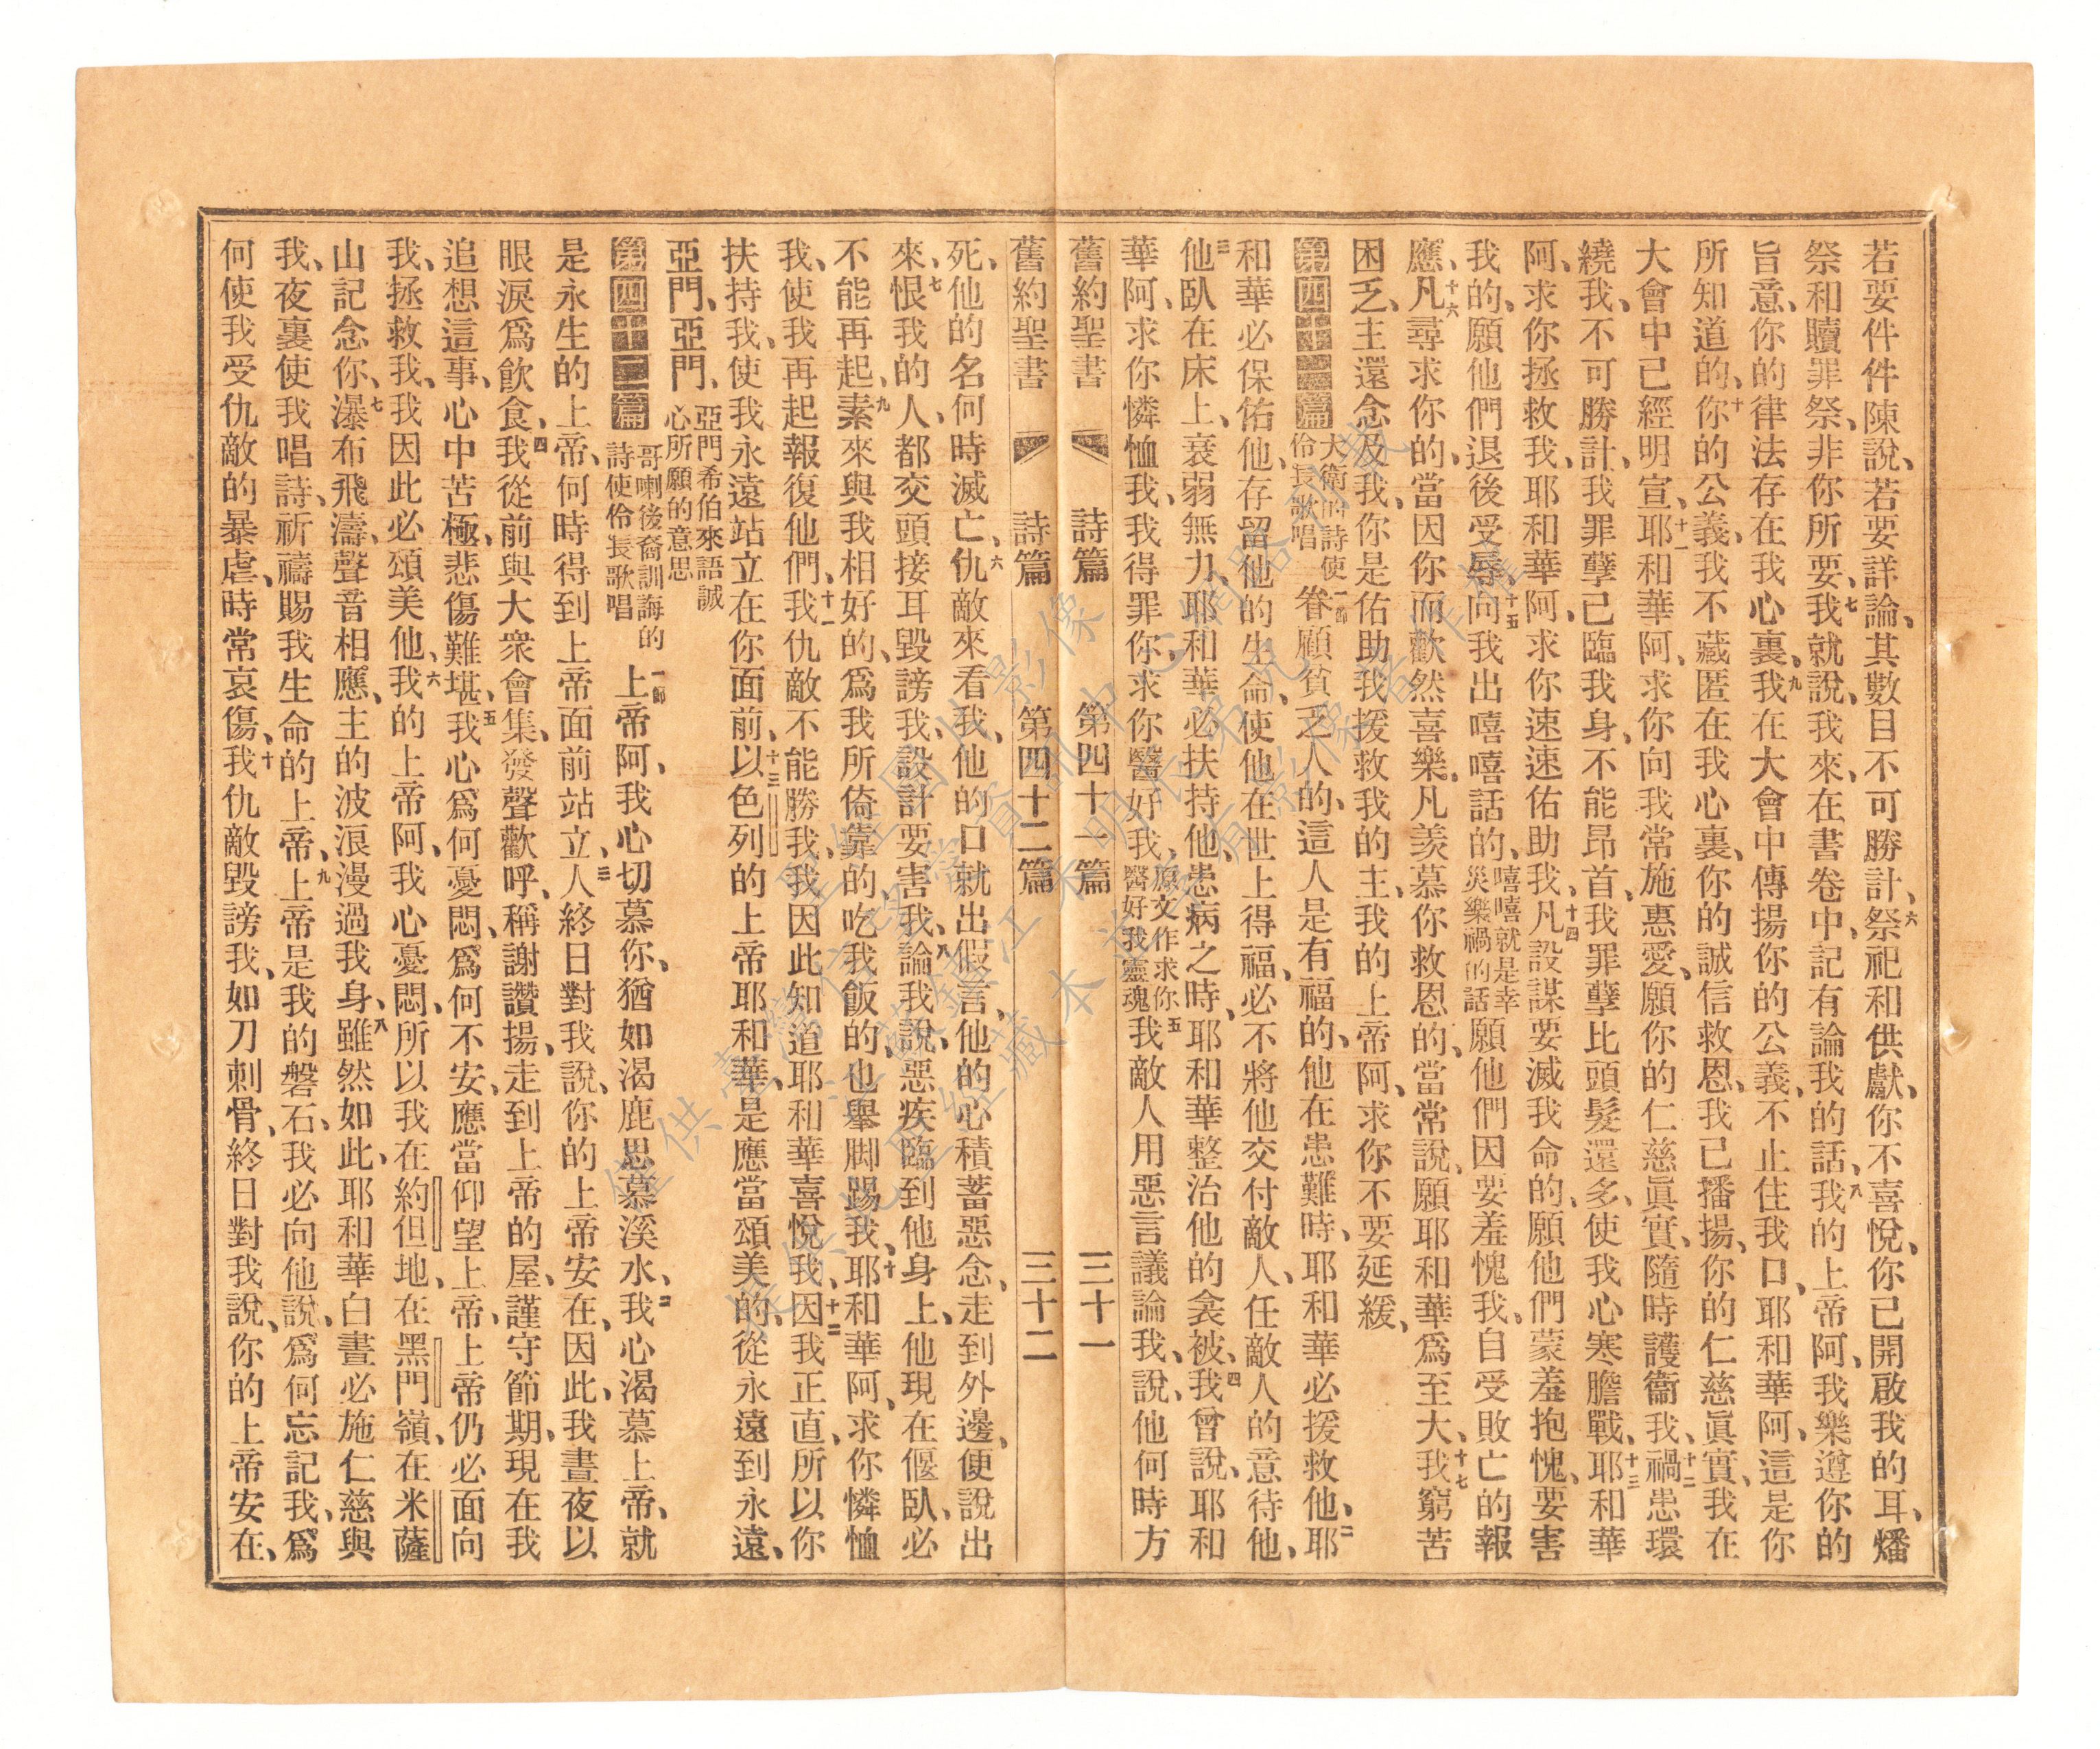 若要件件陳說、若要詳論、其數目不可勝計、六祭祀和供獻、你不喜悅、你已開啟我的耳、燔
祭和贖罪祭、非你所要、七我就說、我來、在書卷中、記有論我的話、八我的上帝阿、我樂遵你的
旨意、你的律法存在我心裏、九我在大會中傳揚你的公義、不止住我口、耶和華阿、這是你
所知道的、十你的公義、我不藏匿在我心裏、你的誠信救恩、我已播揚、你的仁慈眞實、我在
大會中已經明宣、十一耶和華阿、求你向我常施惠愛、願你的仁慈眞實、隨時護衞我、十二禍患環
繞我、不可勝計、我罪孽已臨我身、不能昂首、我罪孽比頭髮還多、使我心寒膽戰、十三耶和華
阿、求你拯救我、耶和華阿、求你速速佑助我、十四凡設謀要滅我命的、願他們蒙羞抱愧、要害
我的、願他們退後受辱、十五向我出嘻嘻話的、嘻嘻就是幸災樂禍的話願他們因要羞愧我、自受敗亡的報
應、十六凡尋求你的、當因你而歡然喜樂、凡羨慕你救恩的、當常說、願耶和華爲至大、十七我窮苦
困乏、主還念及我、你是佑助我援救我的主、我的上帝阿、求你不要延緩、
第四十一篇 大衛的詩使伶長歌唱 一節眷顧貧乏人的、這人是有福的、他在患難時、耶和華必援救他、二耶
和華必保佑他、存留他的生命、使他在世上得福、必不將他交付敵人、任敵人的意待他、
三他臥在床上、衰弱無力、耶和華必扶持他、患病之時、耶和華整治他的衾被、四我曾說、耶和
華阿、求你憐恤我、我得罪你、求你醫好我、原文作求你醫好我靈魂五我敵人用惡言議論我、說、他何時方
舊約聖書 詩篇 第四十一篇 三十一
舊約聖書 詩篇 第四十二篇 三十二
死、他的名何時滅亡、六仇敵來看我、他的口就出假言、他的心積蓄惡念、走到外邊、便說出
來、七恨我的人、都交頭接耳毀謗我、設計要害我、八論我說、惡疾臨到他身上、他現在偃臥、必
不能再起、九素來與我相好的、爲我所倚靠的、吃我飯的、也舉脚踢我、十耶和華阿、求你憐恤
我、使我再起報復他們、十一我仇敵不能勝我、我因此知道耶和華喜悅我、十二因我正直、所以你
扶持我、使我永遠站立在你面前、十三以色列的上帝耶和華、是應當頌美的、從永遠到永遠、
亞門、亞門、亞門希伯來語誠心所願的意思
第四十二篇 哥喇後裔訓誨的詩使伶長歌唱 一節上帝阿、我心切慕你、猶如渴鹿思慕溪水、二我心渴慕上帝、就
是永生的上帝、何時得到上帝面前站立、三人終日對我說、你的上帝安在、因此、我晝夜以
眼淚爲飮食、四我從前與大衆會集、發聲歡呼、稱謝讚揚、走到上帝的屋、謹守節期、現在我
追想這事、心中苦極、悲傷難堪、五我心爲何憂悶、爲何不安、應當仰望上帝、上帝仍必面向
我、拯救我、我因此必頌美他、六我的上帝阿、我心憂悶、所以我在約但地、在黑門嶺、在米薩
山記念你、七瀑布飛濤、聲音相應、主的波浪漫過我身、八雖然如此、耶和華白晝必施仁慈與
我、夜裏使我唱詩、祈禱賜我生命的上帝、九上帝是我的磐石、我必向他說、爲何忘記我、爲
何使我受仇敵的暴虐、時常哀傷、十我仇敵毀謗我、如刀刺骨、終日對我說、你的上帝安在、